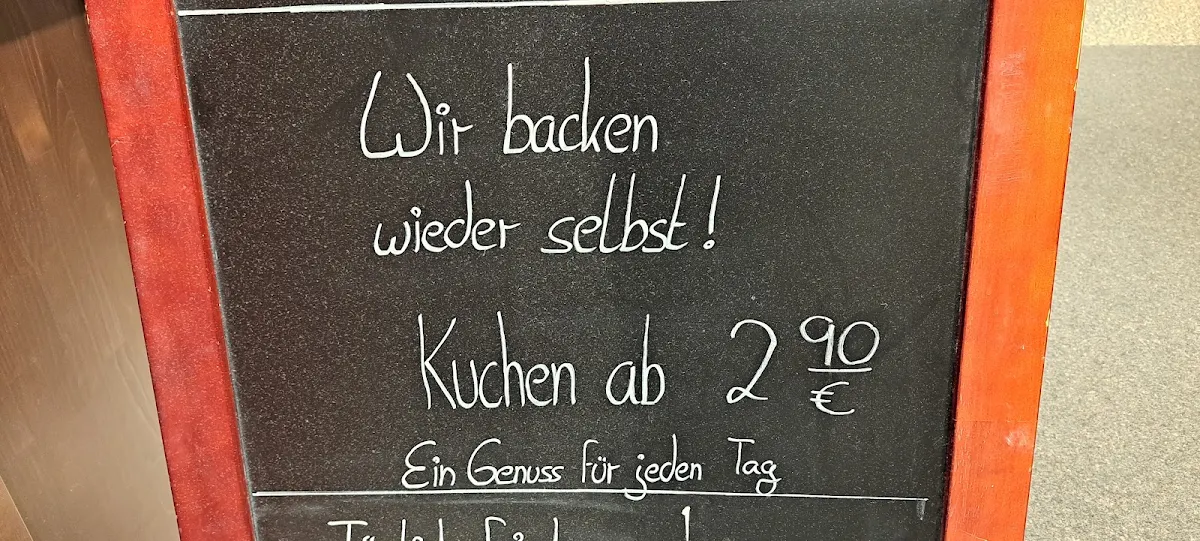 Wir backen
wieder selbst!
Kuchen ab 2 90
€
Ein Genuss für jeden Tag